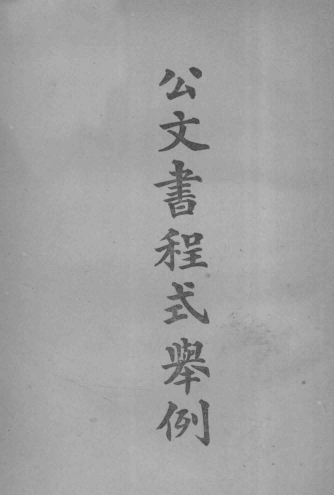 公文書程式舉例